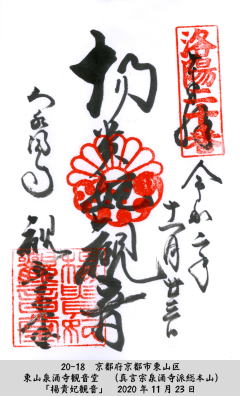 奉拝
令和二年
十一月廿三日
楊貴妃観音
観音堂
20-18　京都府京都市東山区
東山泉涌寺観音堂　（真言宗泉涌寺派総本山）
「楊貴妃観音」　2020年11月23日